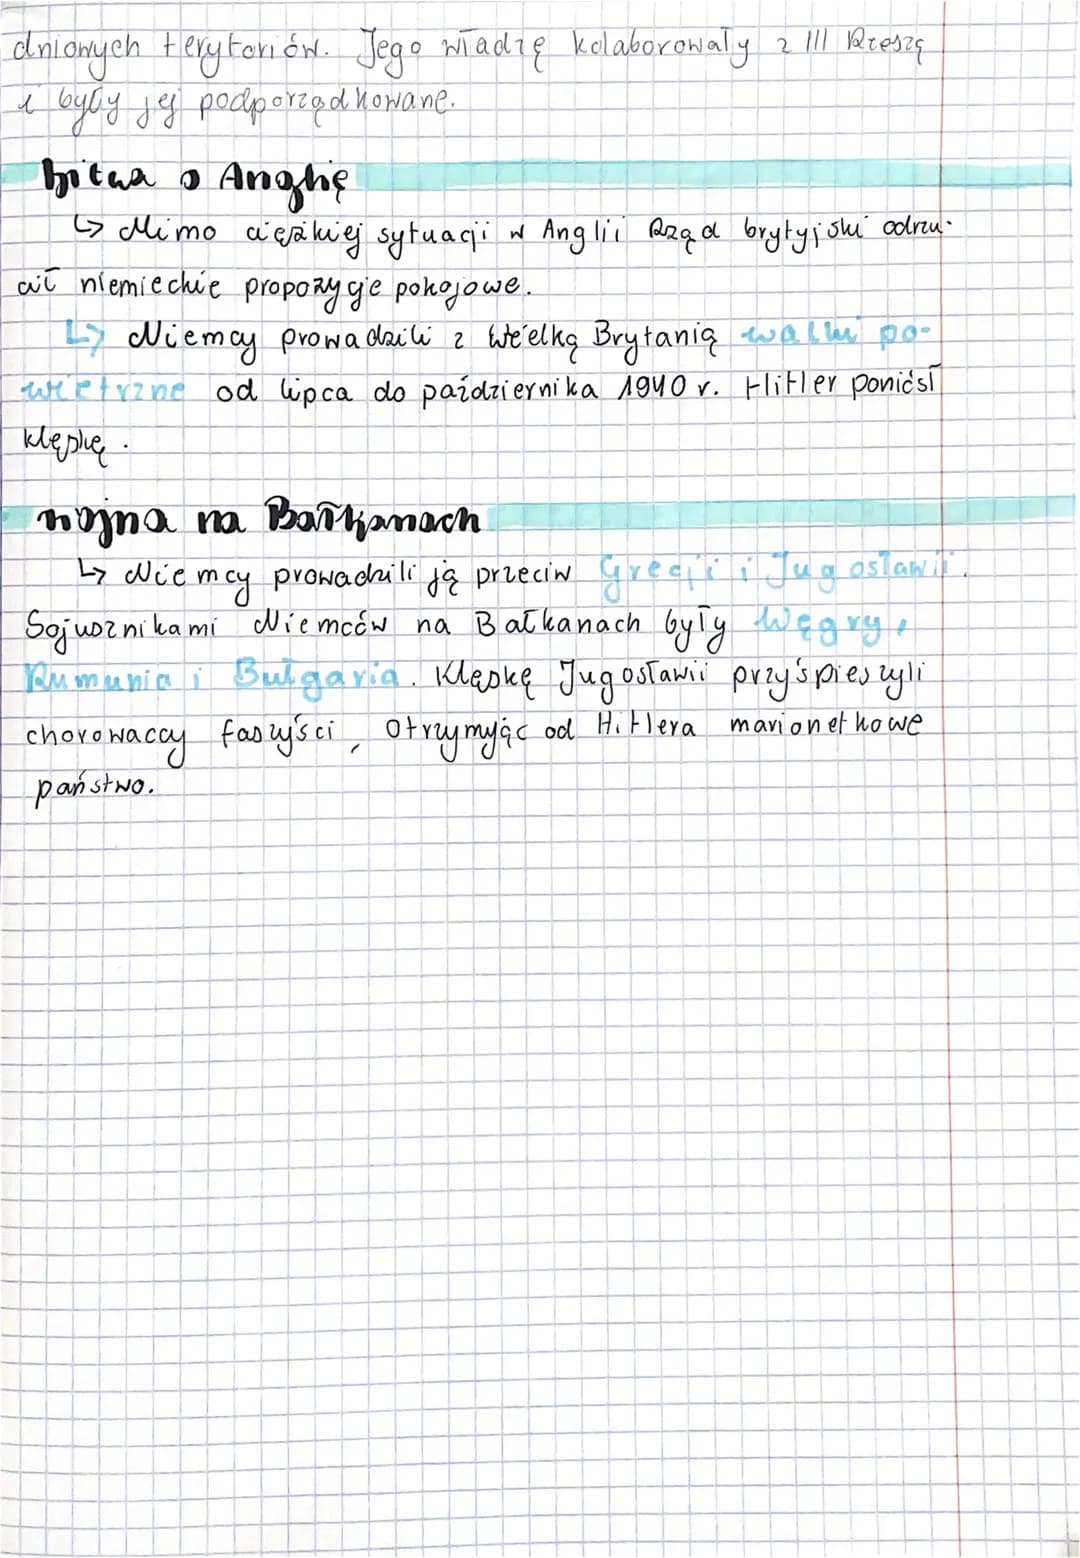 dnionych terytoriów. Jego władzę kolaborowały z III Rzeszą
i były jej podporządkowane.
bitwa o Anglię
↳ Mimo ciężkiej sytuacji w Anglii Rząd brytyjski odrzu-
cił niemieckie propozycje pokojowe.
↳ Niemcy prowadzili z Wielką Brytanią walki po-
wietrzne od lipca do października 1940 r. Hitler poniósł
klęskę.
wojna na Bałkanach
↳ Niemcy prowadzili ją przeciw Grecji i Jugosławii.
Sojusznikami Niemców na Bałkanach były Węgry,
Rumunia i Bułgaria. Klęskę Jugosławii przyśpieszyli
chorowaccy faszyści, otrzymując od Hitlera marionetkowe
państwo.